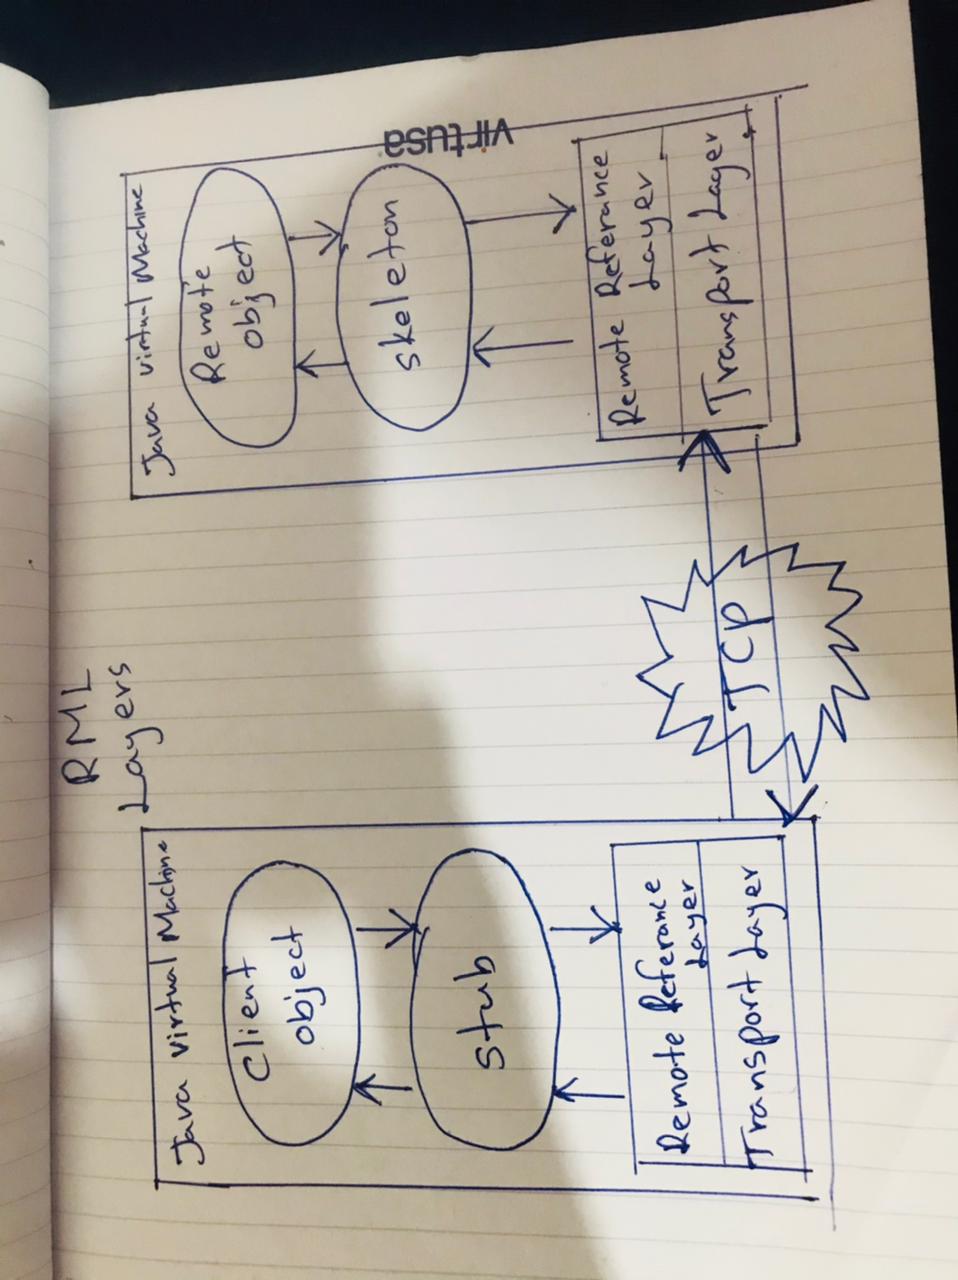 RML
Layers
Java virtual Machine
Client
object
Stub
Remote Referance
Layer
Transport Layer
TCP
Java virtual Machine
Remote
object
skeleton
Remote Referance
Layer
Transport Layer
virtusa